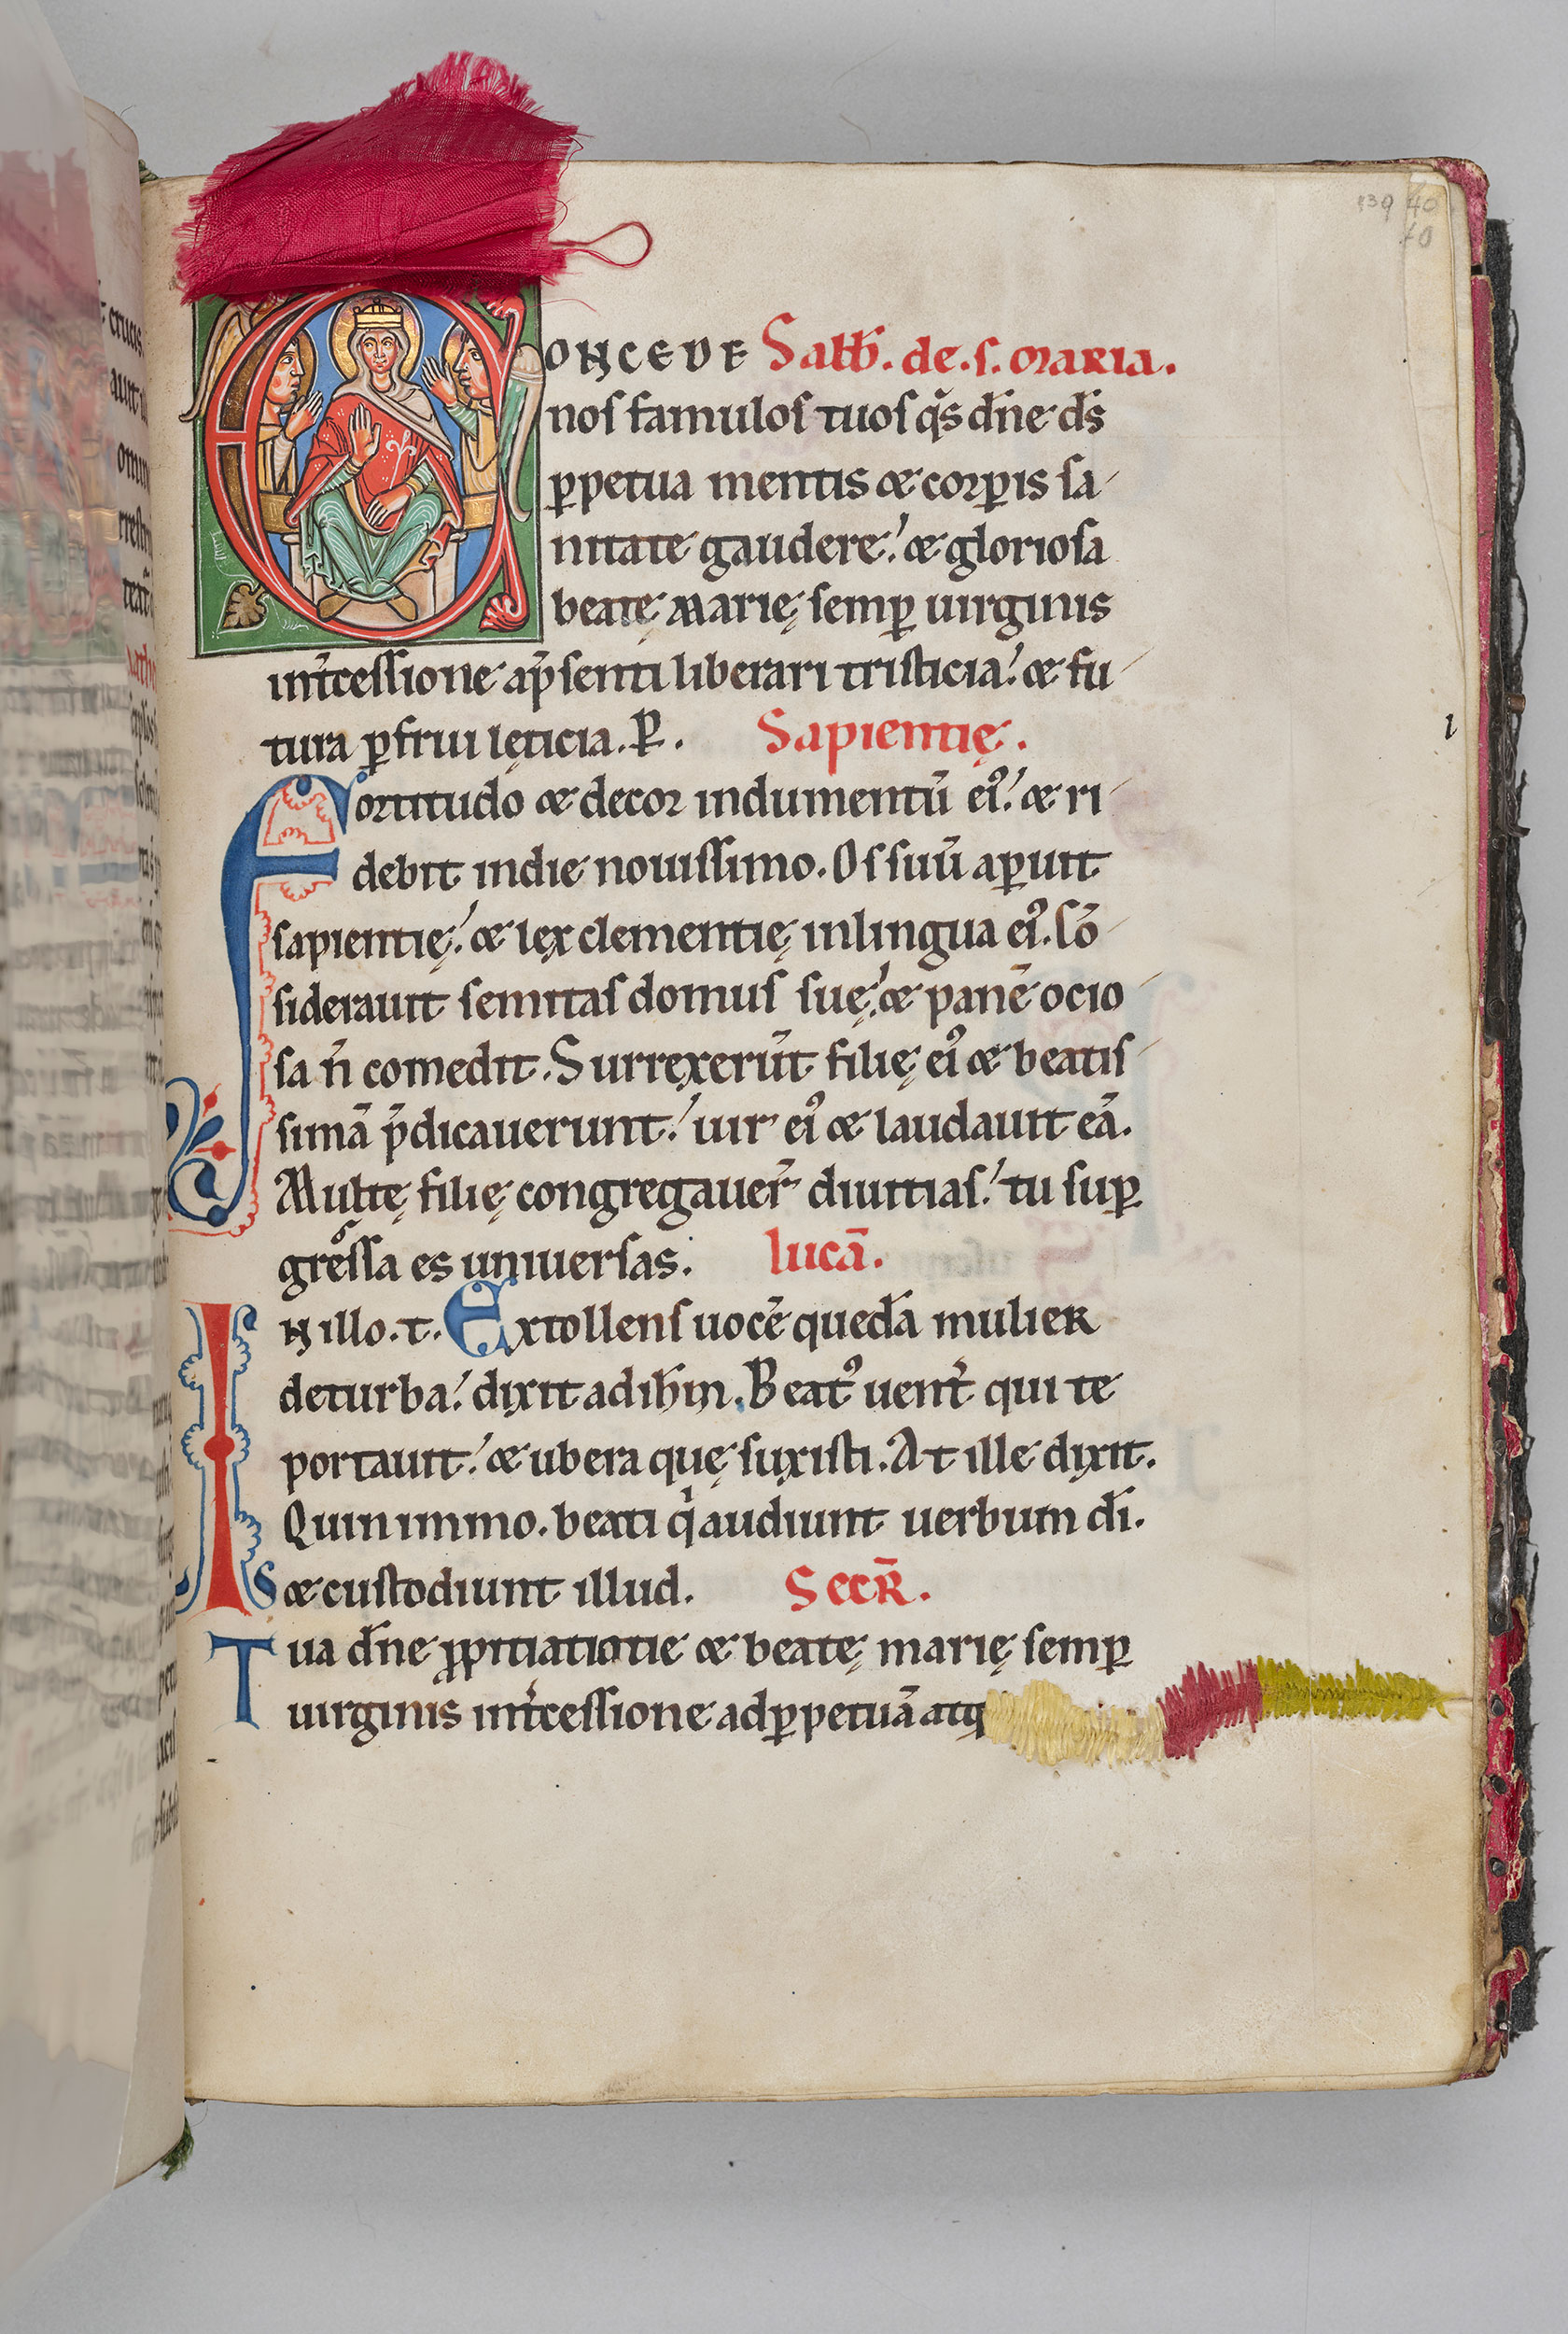 139 40
40
CONCEDE Sabb̄. de. s. maria.
nos famulos tuos q̄s dn̄e ds̄
ꝑpetua mentis & corꝑis sa
nitate gaudere. & gloriosa
beatę Marię semꝑ uirginis
int̄cessione a p̄senti liberari tristicia. & fu
tura ꝑfrui lęticia. P̄. Sapientię.
Fortitudo & decor indumentū eiꝰ. & ri
debit in die nouissimo. Os suū aꝑuit
sapientię. & lex clementię in lingua eiꝰ. Cō
siderauit semitas domus suę. & panē ocio
sa n̄ comedit. Surrexerūt filię eiꝰ & beatis
simā p̄dicauerunt. uir eiꝰ & laudauit eā.
Multę filię congregauer̄ diuitias. tu suꝑ
gͦressa es uniuersas. lucā.
In illo. t. Extollens uocē quedā mulier
de turba. dixit ad ih̄m. Beatꝰ uent̄ qui te
portauit. & ubera quę suxisti. At ille dixit.
Quinimmo. beati qͥ audiunt uerbum dī.
& custodiunt illud. Secr̄.
Tua dn̄e ꝓpitiatione & beatę marię semꝑ
uirginis int̄cessione ad ꝑpetuā atq